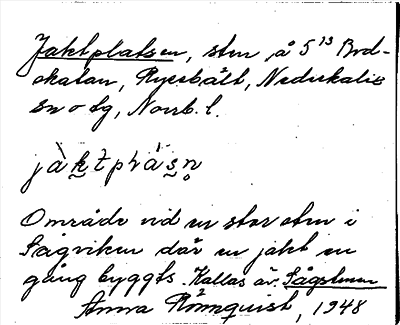 Jaktplatsen, sten å 5 13 Bod-
skatan, Ryssbält, Nederkalix
sn o tg, Norrb. l.
jàktplásn
Område vid en stor sten i
Sågviken där en jakt en
gång byggts. Kallas äv. Sågstenen
Anna Rönnquist, 1948